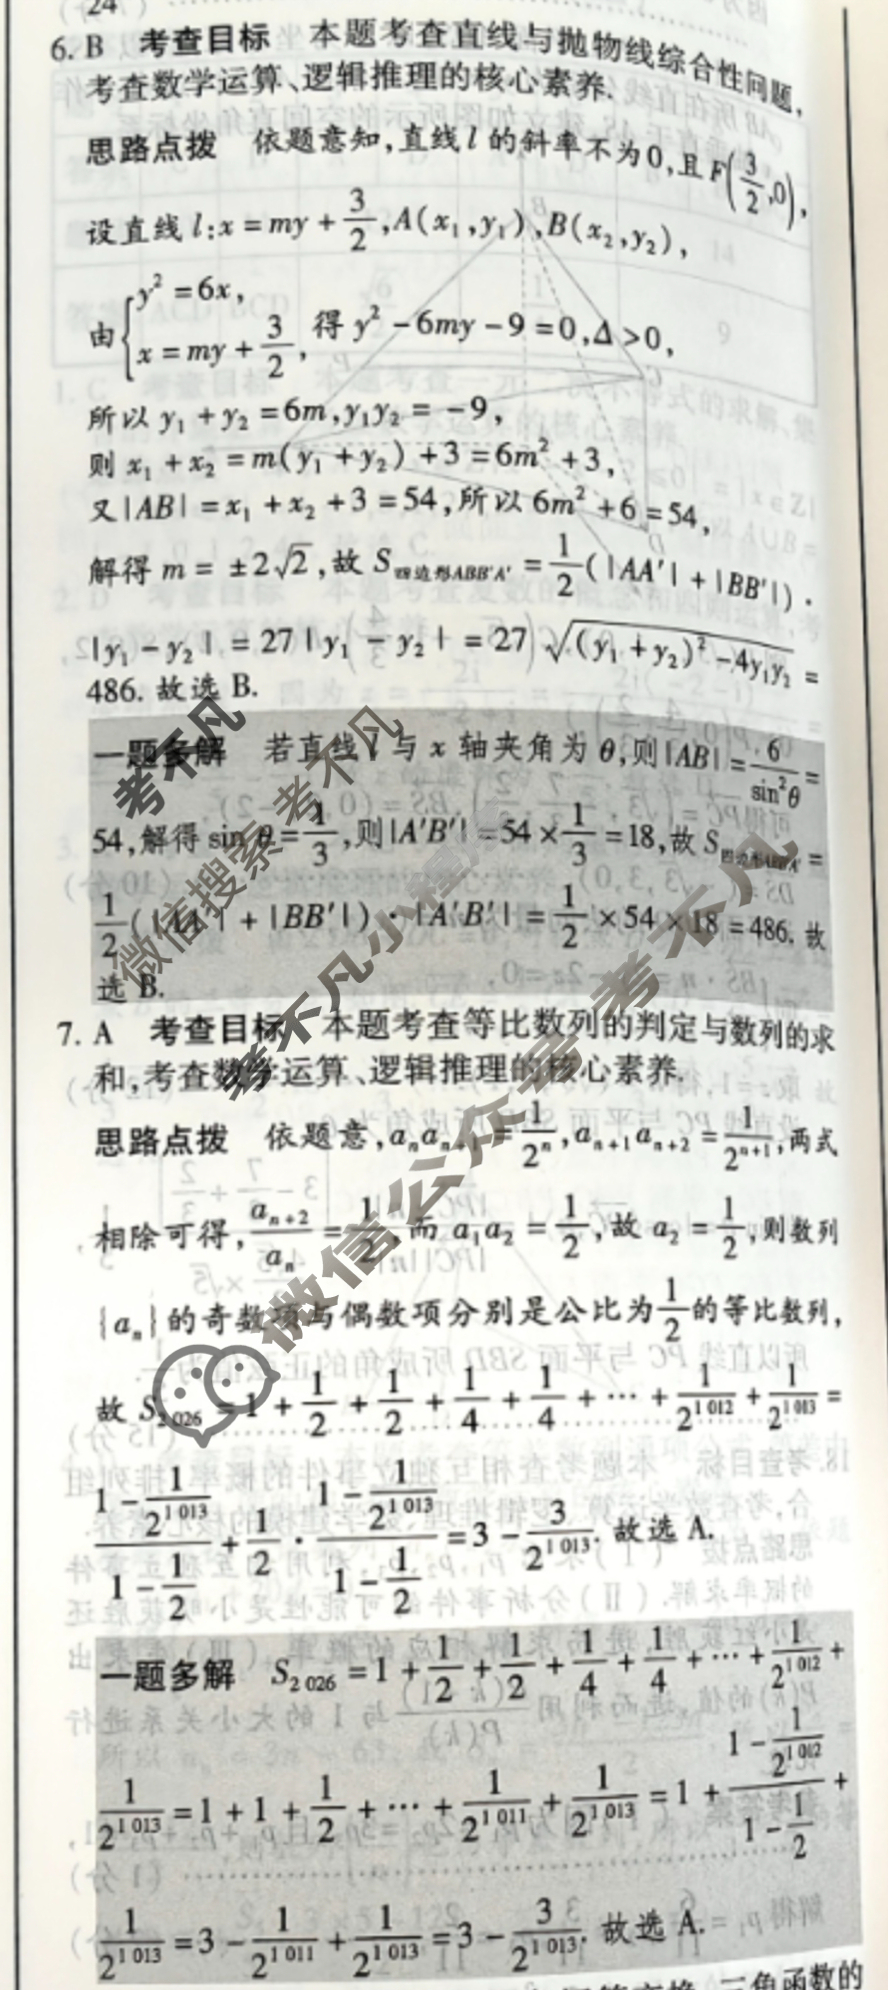 24
6. B 考查目标 本题考查直线与抛物线综合性问题,
考查数学运算、逻辑推理的核心素养.
思路点拨 依题意知,直线l的斜率不为0,且F(3/2,0),
设直线l:x=my+3/2,A(x₁,y₁),B(x₂,y₂),
由{y²=6x, x=my+3/2, 得y²-6my-9=0,Δ>0,
所以y₁+y₂=6m,y₁y₂=-9,
则x₁+x₂=m(y₁+y₂)+3=6m²+3,
又|AB|=x₁+x₂+3=54,所以6m²+6=54,
解得m=±2√2,故S四边形ABB'A'=1/2(|AA'|+|BB'|)·
|y₁-y₂|=27|y₁-y₂|=27√((y₁+y₂)²-4y₁y₂)=
486. 故选B.
一题多解 若直线l与x轴夹角为θ,则|AB|=6/sin²θ=
54,解得sin θ=1/3,则|A'B'|=54×1/3=18,故S四边形ABB'A'=
1/2(|AA'|+|BB'|)·|A'B'|=1/2×54×18=486. 故
选B.
7. A 考查目标 本题考查等比数列的判定与数列的求
和,考查数学运算、逻辑推理的核心素养.
思路点拨 依题意,aₙaₙ₊₁=1/2ⁿ,aₙ₊₁aₙ₊₂=1/2ⁿ⁺¹,两式
相除可得,aₙ₊₂/aₙ=1/2,而a₁a₂=1/2,故a₂=1/2,则数列
{aₙ}的奇数项与偶数项分别是公比为1/2的等比数列,
故S₂ ₀₂₆=1+1/2+1/2+1/4+1/4+⋯+1/2¹ ⁰¹²+1/2¹ ⁰¹³=
(1-1/2¹ ⁰¹³)/(1-1/2)+1/2·(1-1/2¹ ⁰¹³)/(1-1/2)=3-3/2¹ ⁰¹³. 故选A.
一题多解 S₂ ₀₂₆=1+1/2+1/2+1/4+1/4+⋯+1/2¹ ⁰¹²+
1/2¹ ⁰¹³=1+1+1/2+⋯+1/2¹ ⁰¹¹+1/2¹ ⁰¹³=1+(1-1/2¹ ⁰¹²)/(1-1/2)+
1/2¹ ⁰¹³=3-1/2¹ ⁰¹¹+1/2¹ ⁰¹³=3-3/2¹ ⁰¹³. 故选A.
三角函数的
考不凡
微信搜索 考不凡
考不凡小程序
微信公众号 考不凡